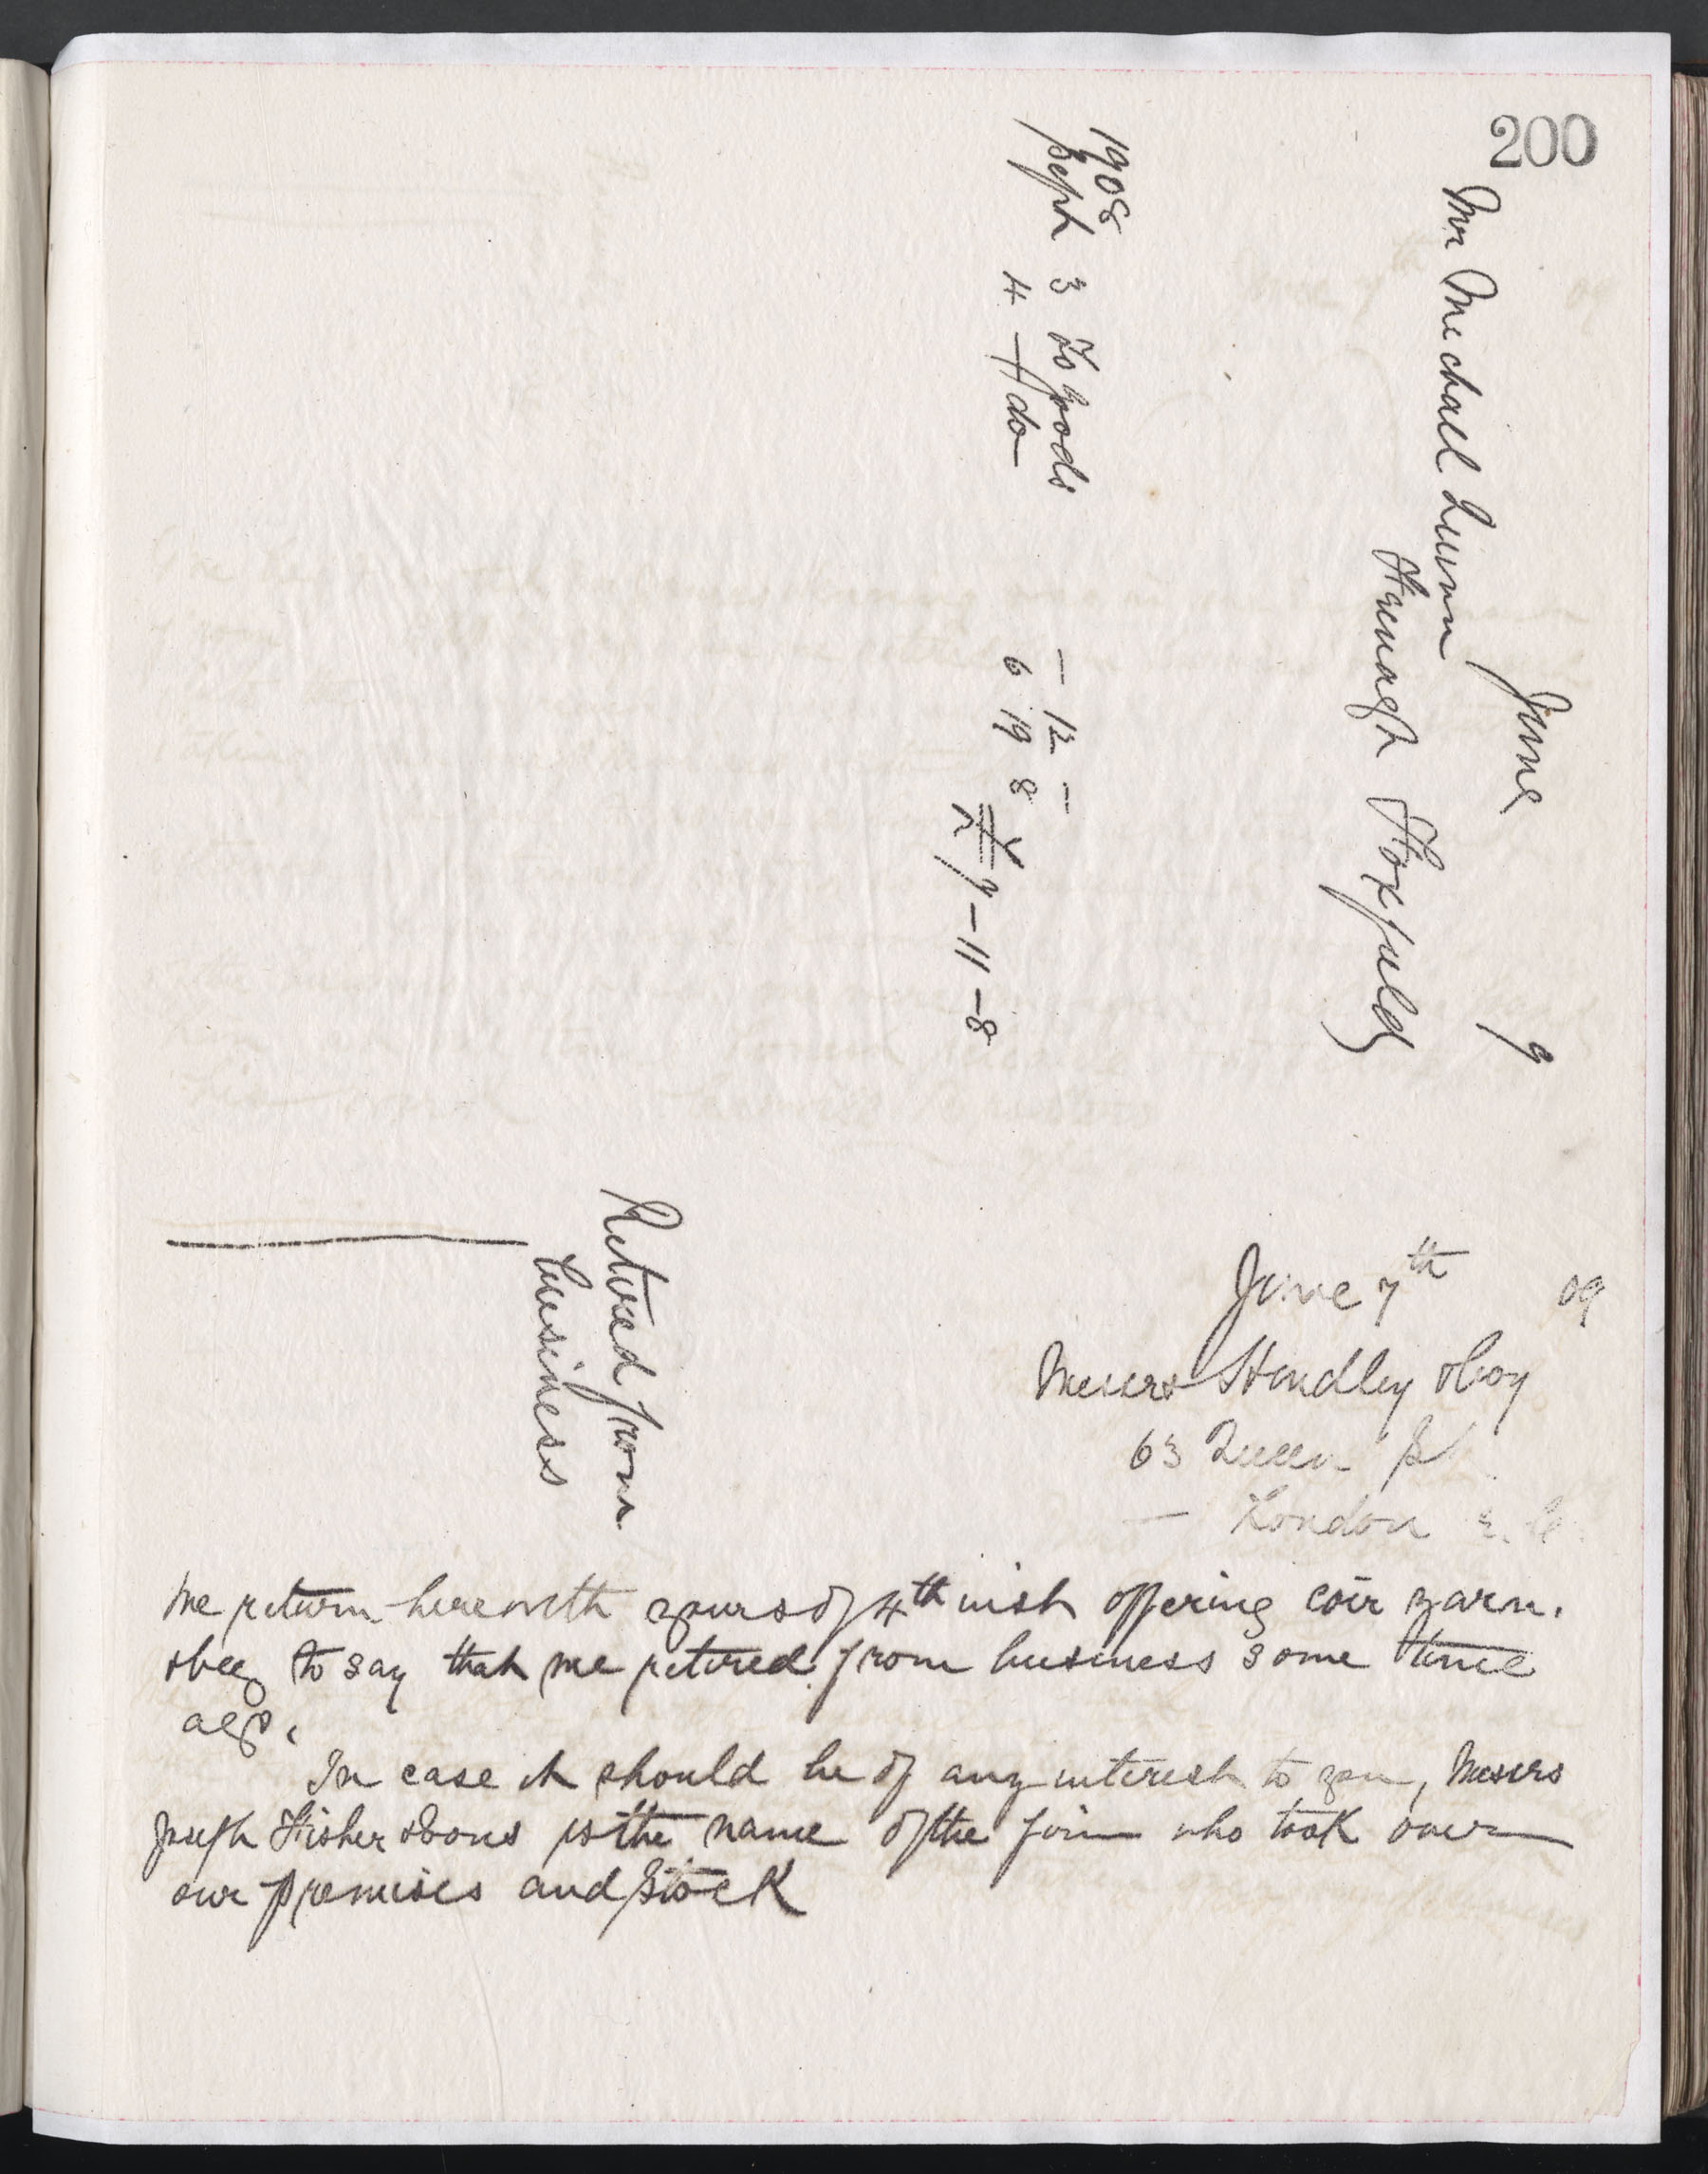 200
June 9
Mr Michael Quinn
Foxfield
1908
Sept 3 To Goods — 12 —
4 do 6 19 8
£7-11-8
Retired from
business
June 7th 09
Messrs Hindley & Coy
63 Queen St
London E.C.
We return herewith yours of 4th inst offering coir yarn.
& beg to say that we retired from business some time
ago.
In case it should be of any interest to you, Messrs
Fisher & Sons is the name of the firm who took over
our premises and stock